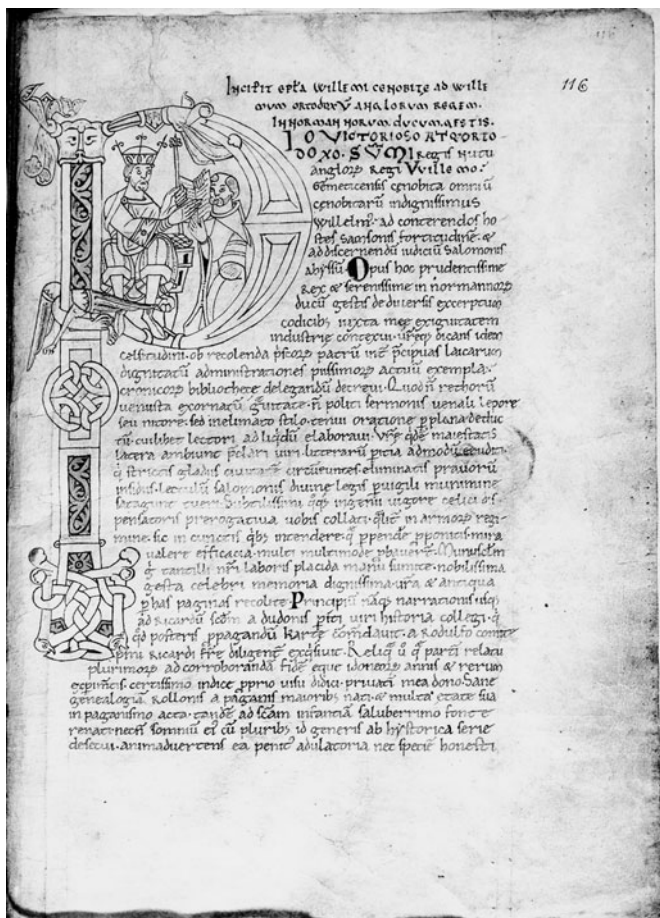 116
INCIPIT EPLA WILLEMI CENOBITE AD WILLE
MUM ORTODOXV ANGLORUM REGEM.
IN NORMANNORUM DUCUM GESTIS.
IO VICTORIOSO ATQ ORTO
DOXO. SUMI regis nutu
anglorꝝ regi Willemo.
Gemeticensis cenobita omniū
cenobitarū indignissimus
Willelm̄. ad conterendos ho
stes samsonis fortitudinē. &
ad discernendū iudiciū salomonis
abyssū. Opus hoc prudentissime
rex & serenissime in normannorꝝ
ducū gestis de diversis excerptum
codicib; iuxta meę exiguitatem
industrie contexui. dicans idem
celsitudini. ob recolenda patrū laicarum
dignitatū administrationes piissimorꝝ actuū exempla.
cronicorꝝ bibliothece delegandū decrevi. rethorū
venusta exornatū gvitate. n̄ politi sermonis venali lepore
seu nitore. sed inelimato stilo. tenui oratione p plana deduc
tū. cuilibet lectori ad liqdū elaboravi. maiestatis
latera ambiunt pclari viri. litterarū pitia admodū eruditi.
q strictis gladiis civitatē circūeuntes. eliminatis pravorū
insidiis. lectulū salomonis divine legis pvigili munimine
satagunt tueri. Subtilissimi ingenii vigore celici dis
pensatoris prerogativa vobis collati. in armorꝝ regi
mine. sic in cunctis intendere. mira
valere efficacia. multi multimode
tantilli nr̄i laboris placida manu sumite. nobilissima
gesta celebri memoria dignissima. vr̄a & antiqua
p has paginas recolite. Principiū naq; narrationis usq;
ad Ricardū scdm a dudonis piti viri historia collegi. q
qd posteris ppagandū kartę cōmdavit. a Rodulfo comite
pmi Ricardi fr̄e diligent exqsivit. Reliq partī relatu
plurimorꝝ ad corroborandā fidē idoneorꝝ annis & rerum
expientis. certissimo indice pprio visu didici. privati mea dono. Sane
genealogiā Rollonis a paganis maioribs nati. & multa etate sua
in paganismo acta. tandē ad scām infantiā saluberrimo fonte
renati. necn̄ somniū ei cū pluribs id generis ab hystorica serie
desecui. animadvertens ea penit adulatoria nec speciē honesti